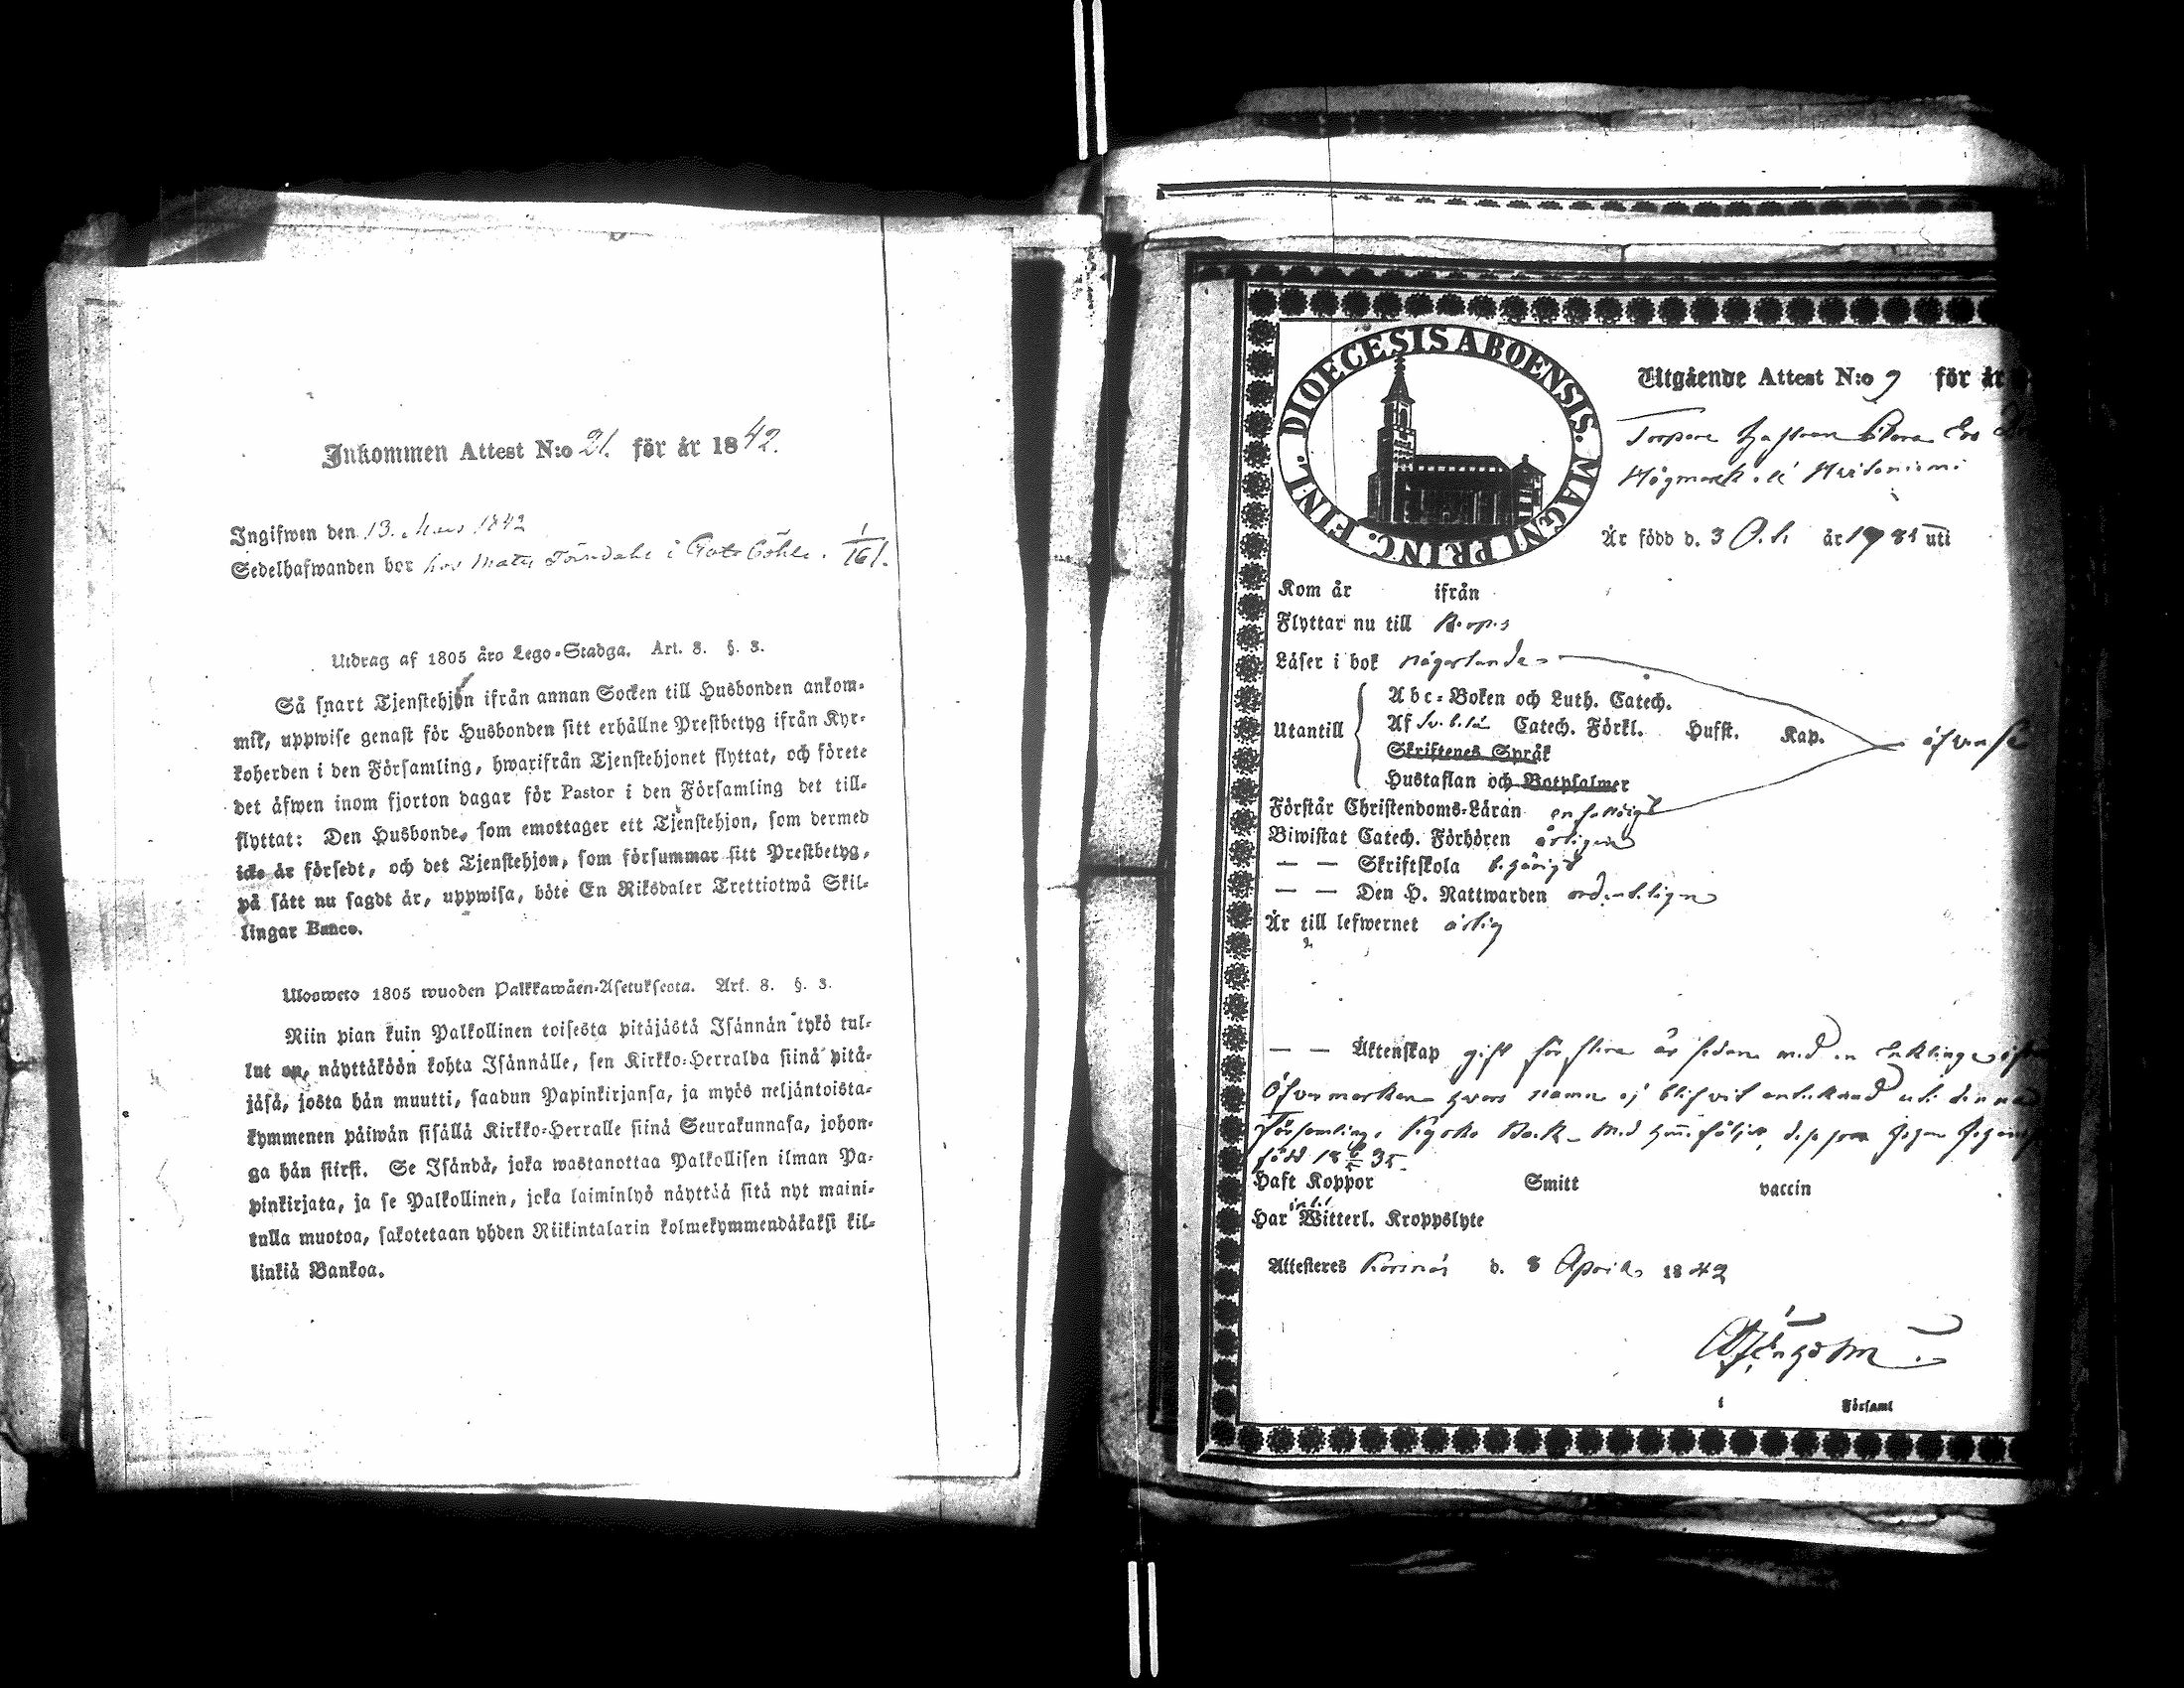 Inkommen Attest N:o 21. för år 1842.
Ingifwen den 13. Mars 1842
Sedelhafwanden bor hos Mats i
Utdrag af 1805 åro Lego-Stadga. Art. 8. §. 3.
Så snart Tjenstehjon ifrån annan Socken till Husbonden ankom-
mit, uppwise genast för Husbonden sitt erhållne Prestbetyg ifrån Kyr-
koherden i den Församling, hwarifrån Tjenstehjonet flyttat, och förete
det äfwen inom fjorton dagar för Pastor i den Församling det till-
flyttat: Den Husbonde, som emottager ett Tjenstehjon, som dermed
icke är försedt, och det Tjenstehjon, som försummar sitt Prestbetyg,
på sätt nu sagdt är, uppwisa, böte En Riksdaler Trettiotwå Skil-
lingar Banco.
Ulosweto 1805 wuoden Palkkawäen-Asetuksesta. Art. 8. §. 3.
Niin pian kuin Palkollinen toisesta pitäjästä Isännän tykö tul-
lut on, näyttäköön kohta Isännälle, sen Kirkko-Herralda siinä pitä-
jäsä, josta hän muutti, saadun Papinkirjansa, ja myös neljäntoista-
kymmenen päiwän sisällä Kirkko-Herralle siinä Seurakunnasa, johon-
ga hän siirsi. Se Isändä, joka wastanottaa Palkollisen ilman Pa-
pinkirjata, ja se Palkollinen, joka laiminlyö näyttää sitä nyt maini-
tulla muotoa, sakotetaan yhden Riikintalarin kolmekymmendäkaksi kil-
linkiä Bankoa.
DIOECESIS ABOENSIS. MAGNI PRINC. FINL.
Utgående Attest N:o 9 för år
Är född d. 3 år 1781 uti
Kom år ifrån
Flyttar nu till
Läser i bok någorlunda
Utantill
Abc-Boken och Luth. Catech.
Af Catech. Förkl. Husst. Kap.
Skriftenes Språk
Hustaflan och Botpsalmer
Förstår Christendoms-Läran enfaldigt
Biwistat Catech. Förhören årligen
— — Skriftskola behörigt
— — Den H. Nattwarden ordenteligen
Är till lefwernet ärlig
— — Äktenskap gift för flera år sedan med en
Öfvermarken hvars namn ej blifvit antecknad uti denna
Församlings Kyrko Bok. Med
född 18 35.
Haft Koppor Smitt vaccin
Har Witterl. Kroppslyte
Attesteres Korsnäs d. 8 April 1842
i Församl